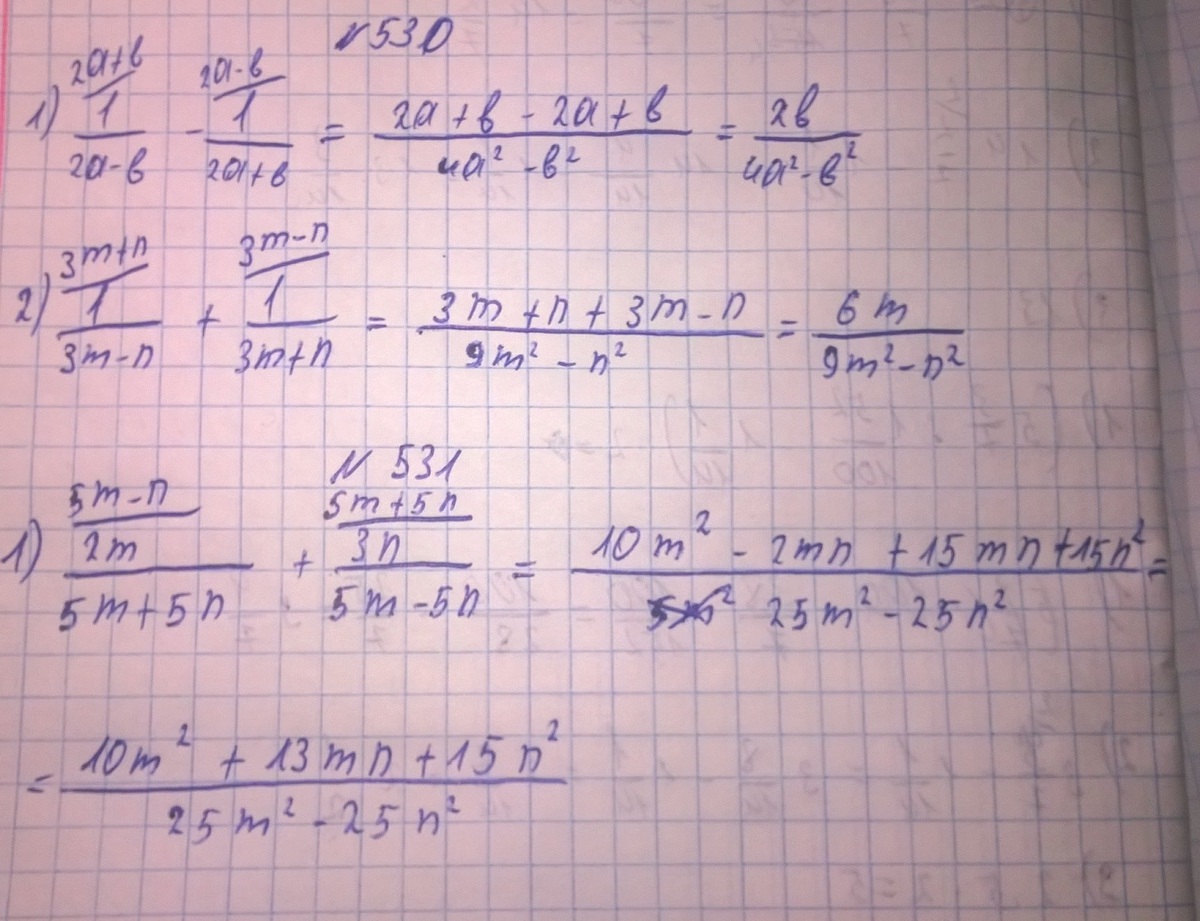 N 530
1) 2a+b/ 1/(2a-b) - 2a-b/ 1/(2a+b) = (2a+b-2a+b)/(4a²-b²) = 2b/(4a²-b²)
2) 3m+n/ 1/(3m-n) + 3m-n/ 1/(3m+n) = (3m+n+3m-n)/(9m²-n²) = 6m/(9m²-n²)
N 531
1) 5m-n/ 2m/(5m+5n) + 5m+5n/ 3n/(5m-5n) = (10m²-2mn+15mn+15n²)/(25m²-25n²) =
= (10m²+13mn+15n²)/(25m²-25n²)